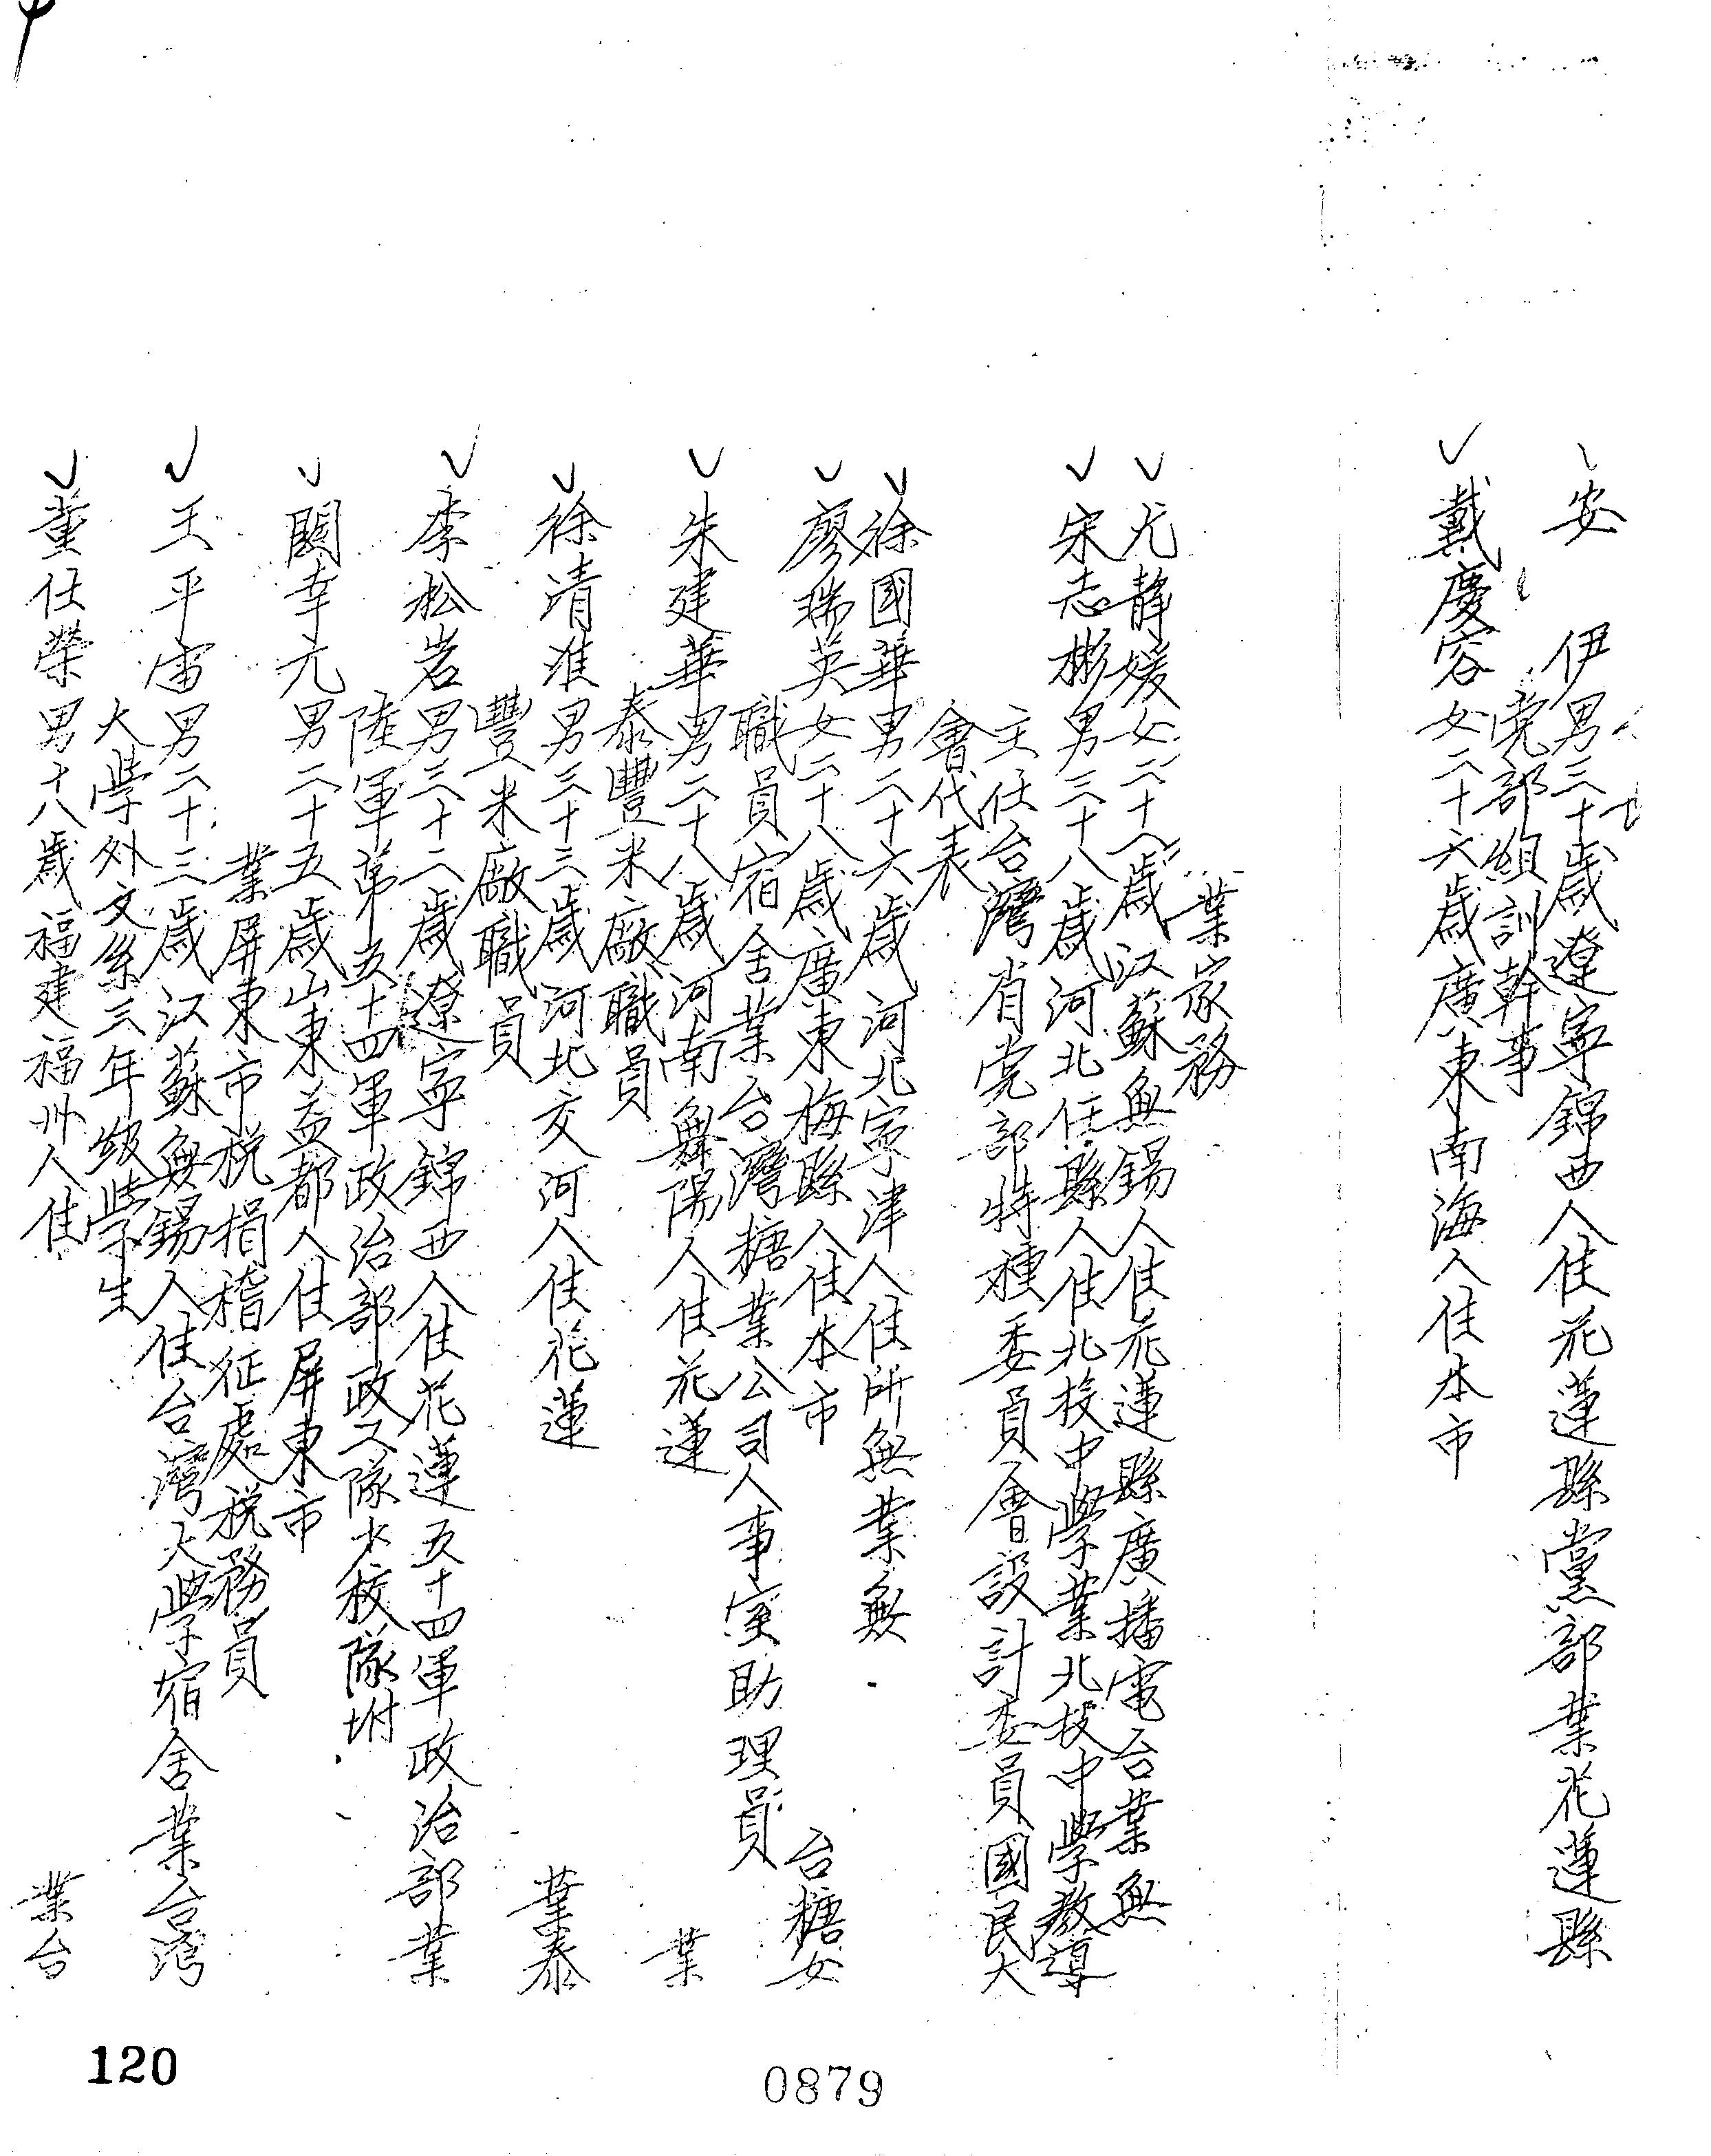 安　伊男三十歲遼寧錦西人住花蓮縣黨部業花蓮縣
党部組訓幹事
戴慶容女二十六歲廣東南海人住本市
業家務
尤靜媛女二十八歲江蘇無錫人住花蓮縣廣播電台業無
宋志彬男三十八歲河北任縣人住北投中學業北投中學教導
主任台灣省党部特種委員會設計委員國民大
會代表
徐國華男二十六歲河北寧津人住所無業無
廖瑞英女二十八歲廣東梅縣人住本市　台糖女
職員宿舍業台灣糖業公司人事室助理員
朱建華男二十八歲河南舞陽人住花蓮　業
泰豐米廠職員
徐清淮男三十三歲河北交河人住花蓮　業泰
豐米廠職員
李松岩男三十二歲遼寧錦西人住花蓮五十四軍政治部業
陸軍第五十四軍政治部政工隊少校隊坿
闕幸元男二十五歲山東益都人住屏東市
業屏東市稅捐稽征處稅務員
王平宙男二十三歲江蘇無錫人住台灣大學宿舍業台灣
大學外文系三年級學生
董仕榮男十八歲福建福州人住　業台
120
0879